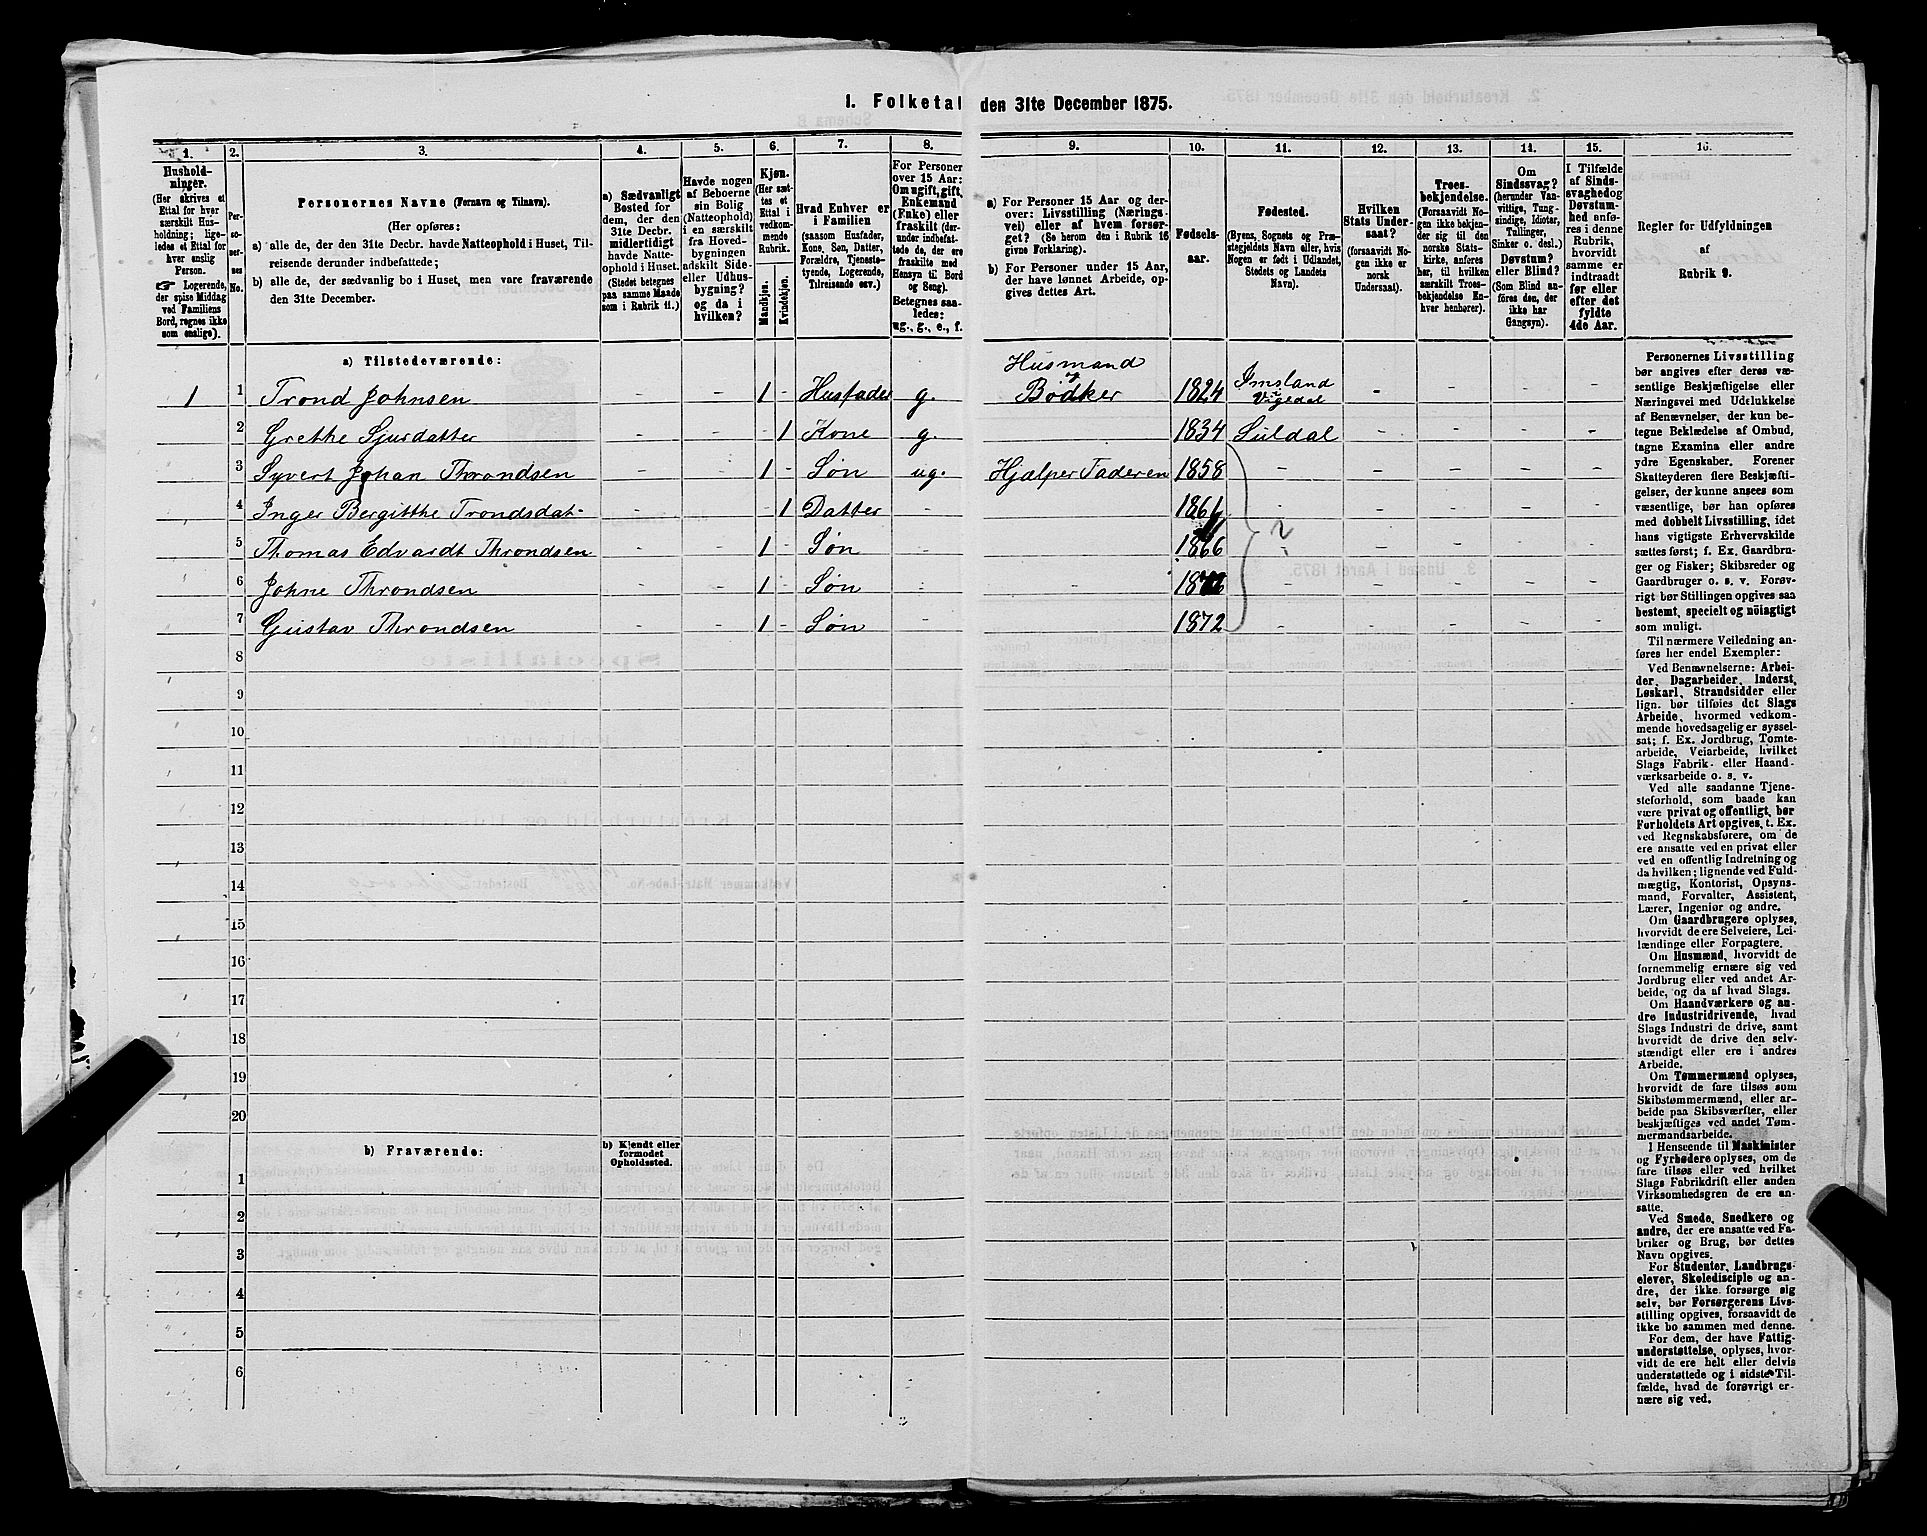 1. Folketal den 31te December 1875.
1. 2. 3. 4. 5. 6. 7. 8. 9. 10. 11. 12. 13. 14. 15. 16.
Hushold-
ninger.
(Her skrives et
Ettal for hver
særskilt Hus-
holdning; lige-
ledes et Ettal for
hver enslig
Person.
☞ Logerende,
der spise Middag
ved Familiens
Bord, regnes ikke
som enslige).
Per-
so-
ner-
nes
No.
Personernes Navne (Fornavn og Tilnavn).
(Her opføres:
a) alle de, der den 31te Decbr. havde Natteophold i Huset, Til-
reisende derunder indbefattede;
b) alle de, der sædvanlig bo i Huset, men vare fraværende
den 31te December.
a) Sædvanligt
Bosted for
dem, der den
31te Decbr.
midlertidigt
havde Natte-
ophold i Huset.
(Stedet betegnes
paa samme Maade
som i Rubrik 11.)
Havde nogen
af Beboerne
sin Bolig
(Natteophold)
i en særskilt
fra Hoved-
bygningen
adskilt Side-
eller Udhus-
bygning?
og da i
hvilken?
Kjøn.
(Her sæt-
tes et
Ettal i
vedkom-
mende
Rubrik.
Mandkjøn.
Kvindekjøn.
Hvad Enhver er
i Familien
(saasom Husfader,
Kone, Søn, Datter,
Forældre, Tjeneste-
tyende, Logerende,
Tilreisende osv.)
For Personer
over 15 Aar:
Om ugift, gift,
Enkemand
(Enke) eller
fraskilt (der-
under indbefat-
tede de, der ere
fraskilte med
Hensyn til Bord
og Seng).
Betegnes saa-
ledes:
ug., g., e., f.
a) For Personer 15 Aar og der-
over: Livsstilling (Nærings-
vei) eller af hvem forsør-
get? (Se herom den i Rubrik 16
givne Forklaring).
b) For Personer under 15 Aar,
der have lønnet Arbeide, op-
gives dettes Art.
Fødsels-
aar.
Fødested.
(Byens, Sognets og Præ-
stegjeldets Navn eller, hvis
Nogen er født i Udlandet,
Stedets og Landets
Navn).
Hvilken
Stats Under-
saat?
(forsaavidt No-
gen ikke er
norsk
Undersaat).
Troes-
bekjendelse.
(Forsaavidt No-
gen ikke bekjen-
der sig til den
norske Stats-
kirke, anføres
her, til hvilken
særskilt Troes-
bekjendelse En-
hver henhører).
Om
Sindssvag?
(herunder Van-
vittige, Tung-
sindige, Idioter,
Tullinger,
Sinker o. desl.)
Døvstum?
eller Blind?
(Som Blind an-
føres den, der
ikke har
Gangsyn).
I Tilfælde
af Sinds-
svaghed og
Døvstum-
hed anfø-
res i denne
Rubrik,
hvorvidt
samme er
indtraadt
før eller
efter det
fyldte
4de Aar.
Regler for Udfyldningen
af
Rubrik 9.
a) Tilstedeværende:
1 1 Trond Johnsen - - 1 - Husfader g. Husmand og Bødker 1824 Imsland Vigedal - - - -
2 Grethe Sjurdatter - - 1 Kone g. 1834 Suldal - - - -
3 Syvert Johan Throndsen - - 1 - Søn ug. Hjælper Faderen 1858 - - - - -
4 Inger Bergitthe Trondsdat- - - 1 Datter - - 1861 - - - - -
5 Thomas Edvardt Throndsen - - 1 - Søn - - 1866 ? - - - -
6 Johne Throndsen - - 1 - Søn - - - - - - -
7 Gustav Throndsen - - 1 - Søn - 1872 - - - - -
8
9
10
11
12
13
14
15
16
17
18
19
20
b) Fraværende:
b) Kjendt eller
formodet
Opholdssted.
1
2
3
4
5
6
Personernes Livsstilling
bør angives efter deres væ-
sentlige Beskjæftigelse eller
Næringsvei med Udelukkelse
af Benævnelser, der kun be-
tegne Beklædelse af Ombud,
tagne Examina eller andre
ydre Egenskaber. Forener
Skatteyderen flere Beskjæfti-
gelser, der kunne ansees som
væsentlige, bør han opføres
med dobbelt Livsstilling, idet
hans vigtigste Erhvervskilde
sættes først; f. Ex. Gaardbru-
ger og Fisker; Skibsreder og
Gaardbruger o. s. v. Forøv-
rigt bør Stillingen opgives saa
bestemt, specielt og nøiagtigt
som muligt.
Til nærmere Veiledning an-
føres her endel Exempler:
Ved Benævnelserne: Arbei-
der, Dagarbeider, Inderst,
Løskarl, Strandsidder eller
lign. bør tilføies det Slags
Arbeide, hvormed vedkom-
mende hovedsagelig er syssel-
sat; f. Ex. Jordbrug, Tomte-
arbeide, Veiarbeide, hvilket
Slags Fabrik- eller Haand-
værksarbeide o. s. v.
Ved alle saadanne Tjene-
steforhold, som baade kan
være privat og offentligt, bør
Forholdets Art opgives, t. Ex.
ved Regnskabsførere, om de
ere ansatte ved en privat eller
ved en offentlig Indretning og
da hvilken; lignende ved Fuld-
mægtig, Kontorist, Opsyns-
mand, Forvalter, Assistent,
Lærer, Ingeniør og andre.
Om Gaardbrugere oplyses,
hvorvidt de ere Selveiere, Lei-
lændinge eller Forpagtere.
Om Husmænd, hvorvidt de
fornemmelig ernære sig ved
Jordbrug eller ved andet Ar-
beide, og da af hvad Slags.
Om Haandværkere og an-
dre Industridrivende, hvad
Slags Industri de drive, samt
hvorvidt de drive den selv-
stændigt eller ere i andres
Arbeide.
Om Tømmermænd oplyses,
hvorvidt de fare tilsøs som
Skibstømmermænd, eller ar-
beide paa Skibsværfter, eller
beskjæftiges ved andet Tøm-
mermandsarbeide.
I Henseende til Maskinister
og Fyrbødere oplyses, om de
fare tilsøs eller ved hvilket
Slags Fabrikdrift eller anden
Virksomhedsgren de ere an-
satte.
Ved Smede, Snedkere og
andre, der ere ansatte ved Fa-
briker og Brug, bør dettes
Navn opgives.
For Studenter, Landbrugs-
elever, Skoledisciple og an-
dre, der ikke forsørge sig
selv, bør Forsørgerens Livs-
stilling opgives, forsaavidt de
ikke bo sammen med denne.
For dem, der have Fattig-
understøttelse, oplyses, hvor-
vidt de ere helt eller delvis
understøttede og i sidste Til-
fælde, hvad de forøvrigt er-
nære sig ved.